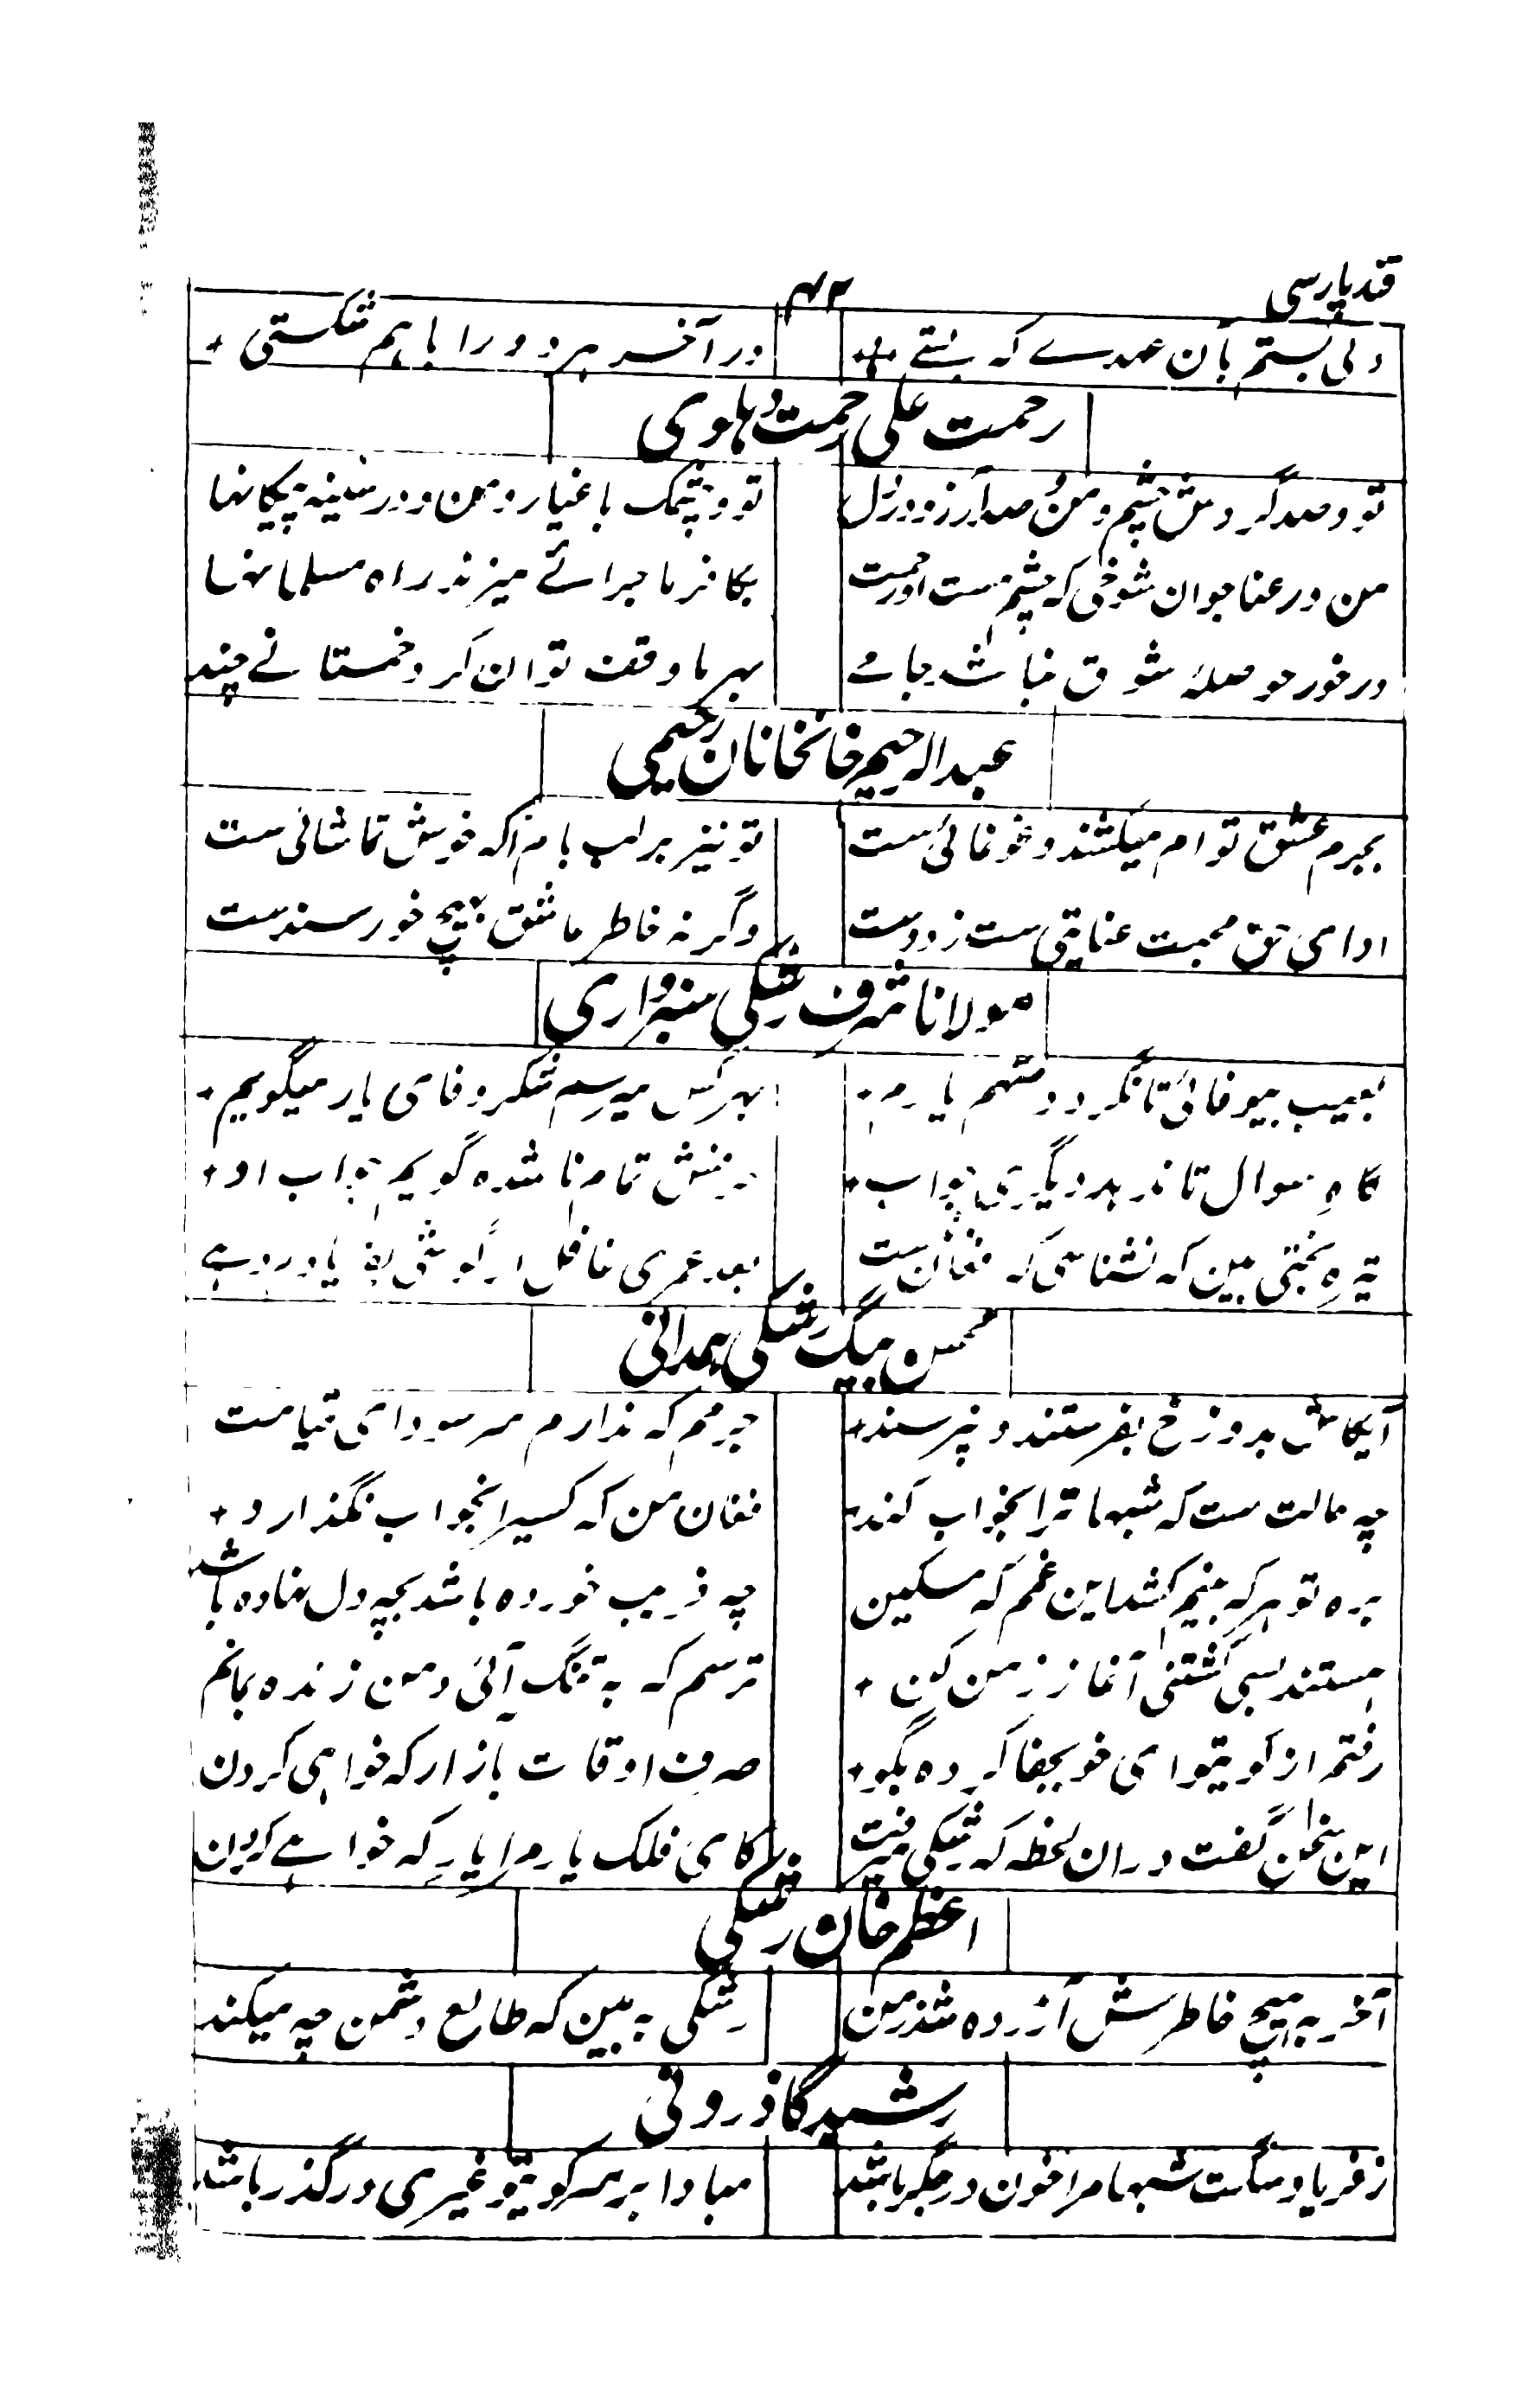 قند پارسی
۴۲
دلی بستم بآن عهدے که بستے
در آخر هر دو را باهم شکستی
رحمت علی رحمت دهلوی
تو و صد گردش چشم و من و صد آرزو در دل
تو و چشمک باغیار و من و در سینه پیکانها
من و رعنا جوان شوخی که چشم مست او رحمت
بکافر ماجرائے میزند راه مسلمانها
در خور حوصلهٔ شوق نباشد جائے
بهر ما وقف توان کرد خمستانے چند
عبدالرحیم خانخانان رحیمی
بجرم عشق توام میکشند و غوغائیست
تو نیز بر لب بام آکه خوش تماشائیست
ادای حق محبت عنایتی ست ز دوست
وگرنه خاطر عاشق بهیچ خورسندست
مولانا شرف رشکی سبزواری
بعیب بیوفائی تا نگردد متهم یارم
بهر کس میرسم شکر وفای یار میگویم
گاه سوال تا ندهد دیگری جواب
تمام ناشده گویم جواب او
تیره بختی بین که نشناسی که افغان
بعد عمری غافل ار گوشی
محسن بیگ رشکی همدانی
ایکاش بدوزخ بفرستند و نپرسند
جرمم که ندارم سر سودای قیامت
چه حالت ست که شبها ترا بخواب کند
فغان من که کسیرا بخواب نگذارد
بره تو هر که بینم کشد این غم که مسکین
چه فریب خورده باشد بچه دل نهاده باشد
هستند بسی کشتنی آغاز ز من کن
ترسم که به تنگ آئی و من زنده بمانم
رفتم از کویتو ای خو بجفا کرده بگو
صرف اوقات بازار که خواهی کردن
این سخن گفت دران لحظه که رشکی میرفت
کای فلک یار مرا یار که خواهے کردن
اعظم خان رشکی
آخر به هیچ خاطرش آزرده شد ز من
رشکی به بین که طالع دشمن چه میکند
رشید گاذرونی
ز فریاد سگت شبها مرا خون در جگر باشد
مبادا بر سر کویتو غیری در گذر باشد